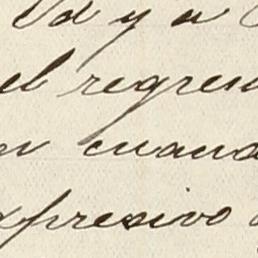 Vd y a
el regres
cuand
expresivo